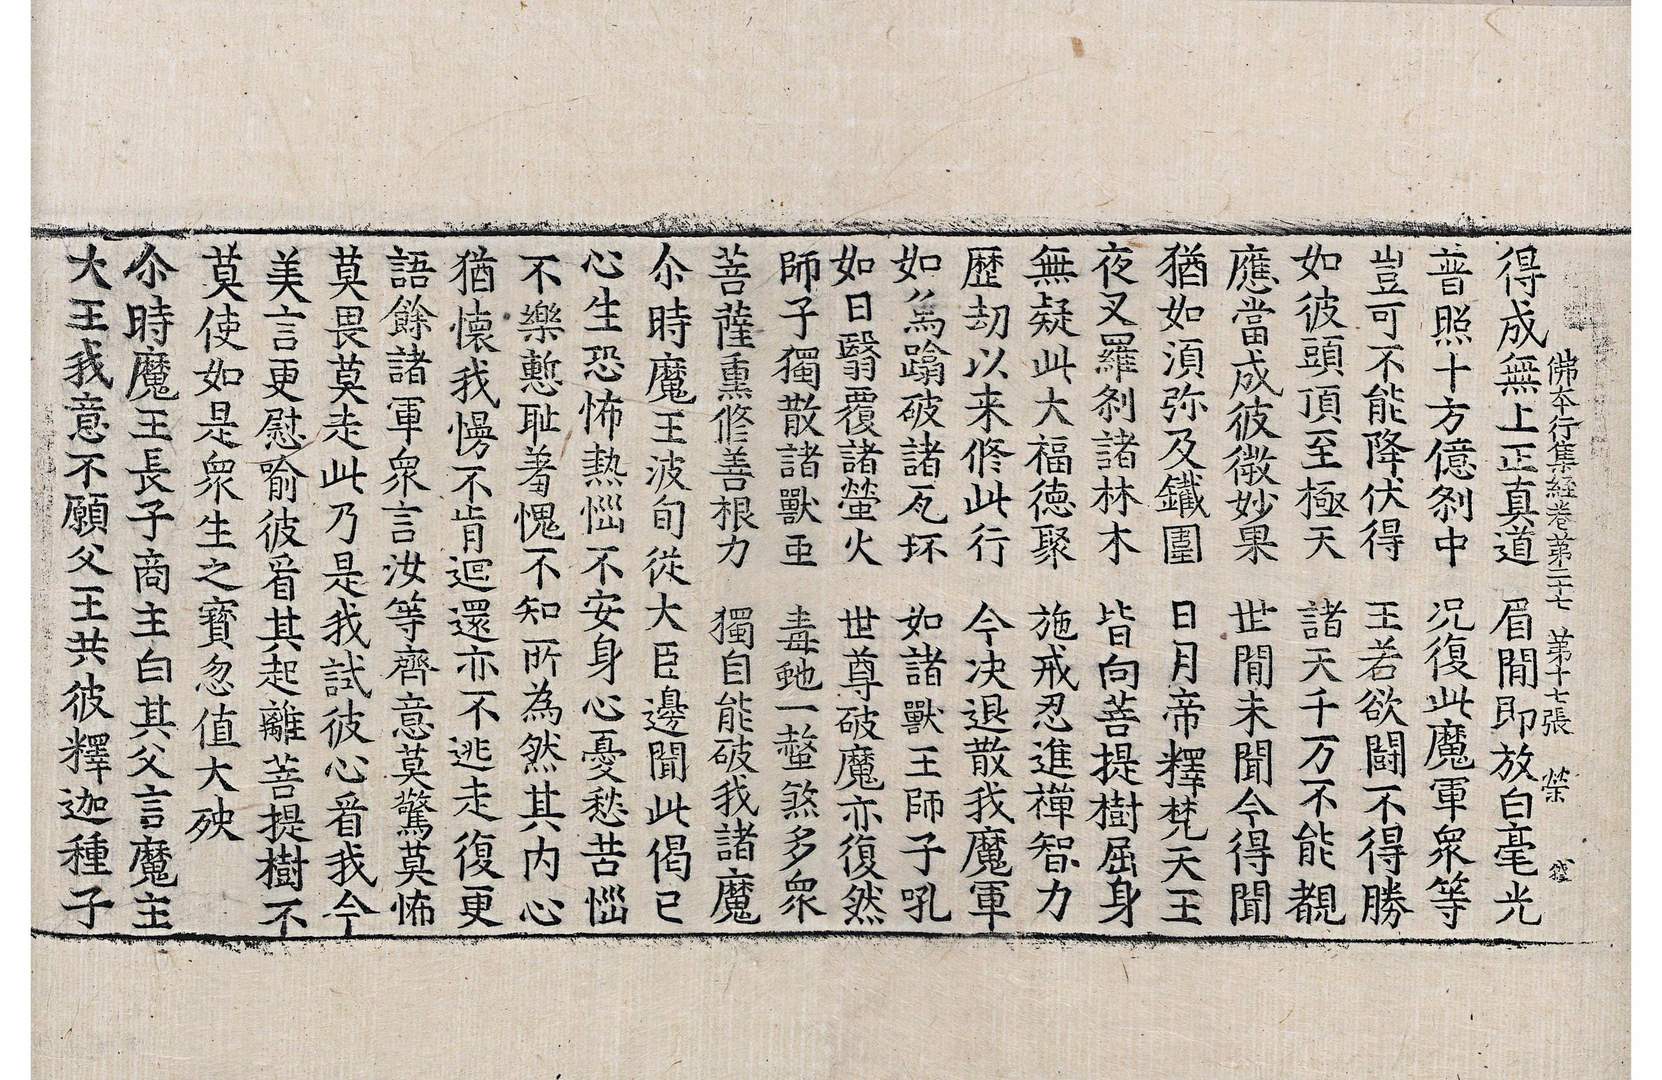 佛本行集經卷第二十七 第十七張 榮
得成無上正真道 眉間即放白毫光
普照十方億刹中 況復此魔軍衆等
豈可不能降伏得 王若欲鬪不得勝
如彼頭頂至極天 諸天千万不能覩
應當成彼微妙果 世間未聞今得聞
猶如湏弥及鐵圍 日月帝釋梵天王
夜叉羅刹諸林木 皆向菩提樹屈身
無疑此大福德聚 施戒忍進禪智力
歷劫以来修此行 今决退散我魔軍
如爲踰破諸瓦坏 如諸獸王師子吼
如日翳覆諸螢火 世尊破魔亦復然
師子獨散諸獸王 毒虵一螫煞多衆
菩薩熏修善根力 獨自能破我諸魔
尒時魔王波旬從大臣邊聞此偈已
心生恐怖熱惱不安身心憂愁苦惱
不樂慙耻著愧不知所為然其内心
猶懷我慢不肯迴還亦不逃走復更
語餘諸軍衆言汝等齊意莫驚莫怖
莫畏莫走此乃是我試彼心看我今
美言更慰喻彼看其起離菩提樹不
莫使如是衆生之寶忽值大殃
尒時魔王長子商主白其父言魔主
大王我意不願父王共彼釋迦種子